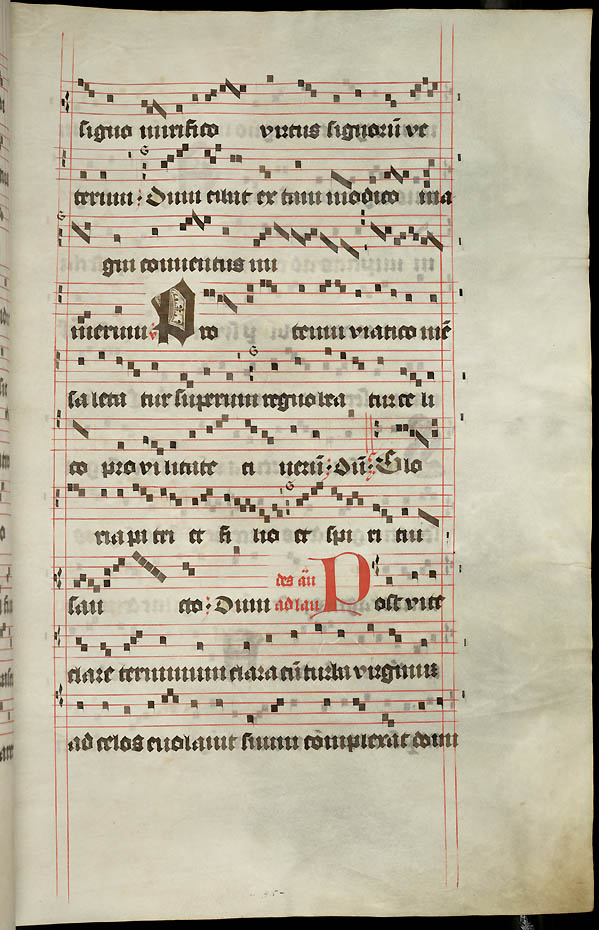 signo mirifico virtus signorū ve
terum : Dum cibat ex tam modico ma
gni conventus nu
merum ℣ Pro terreni viatico mē
sa leta tur superum regno lea tur ce li
co pro vi litate ci nerū : Dū : Glo
ria pa tri et fi lio et spi ri tui
san cto : Dum ad lau des an̄ Post vite
clare terminum clara cū turba virginum
ad celos evolavit sinum complexāt domi